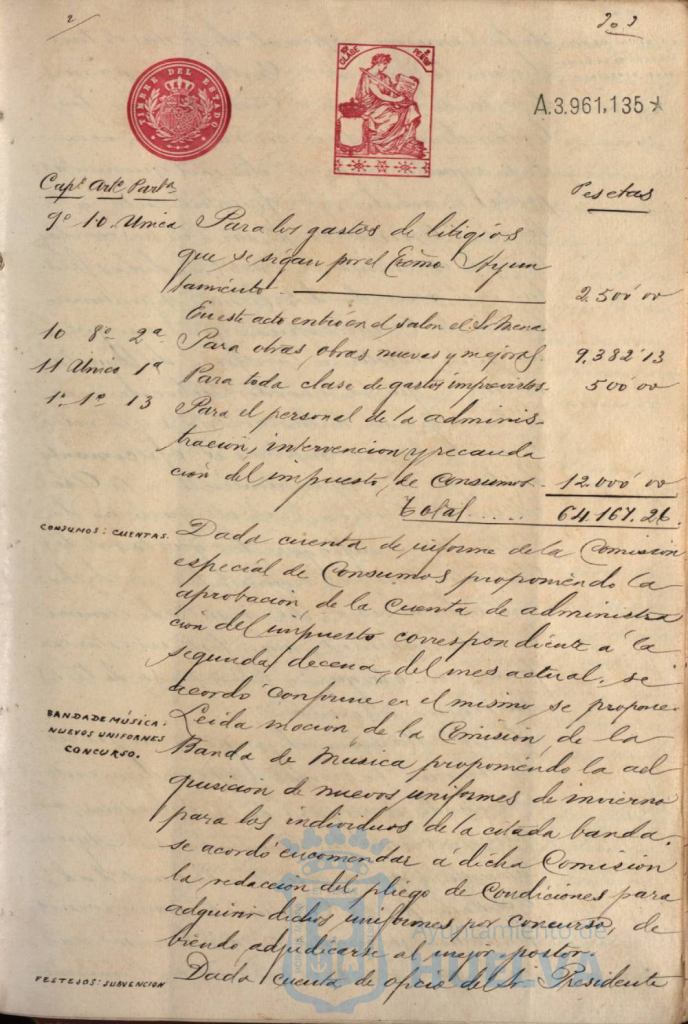 2
202
TIMBRE DEL ESTADO
CLASE PESETAS
A.3.961,135*
Capº Artº Partª Pesetas
9º 10. Unica Para los gastos de litigios
que se sigan por el Excmo Ayun
tamiento. 2.500'00
En este acto entró en el salon el Sr Mena
10 8º 2ª Para otras, obras nuevas y mejoras. 9.382'13
11 Unico 1ª Para toda clase de gastos imprevistos. 500'00
1º 1º 13 Para el personal de la adminis-
tración, intervencion y recauda
ción del impuesto, de Consumos. 12.000'00
Total..... 64.167.26
CONSUMOS: CUENTAS. Dada cuenta de informe de la Comisión
especial de Consumos proponiendo la
aprobación, de la Cuenta de administra
ción del impuesto correspondiente á la
segunda decena, del mes actual, se
acordó conforme en el mismo se propone.
BANDA DE MÚSICA.
NUEVOS UNIFORMES
CONCURSO.
Leida mocion, de la Comisión, de la
Banda de Musica proponiendo la ad
quisición de nuevos uniformes de invierno
para los individuos de la citada banda,
se acordó encomendar á dicha Comisión
la redaccion del pliego de Condiciones para
adquirir dichos uniformes por concurso, de
biendo adjudicarse al mejor postor.
FESTEJOS: SUBVENCION Dada cuenta de oficio del Sr. Presidente
Ayuntamiento de
HUELVA